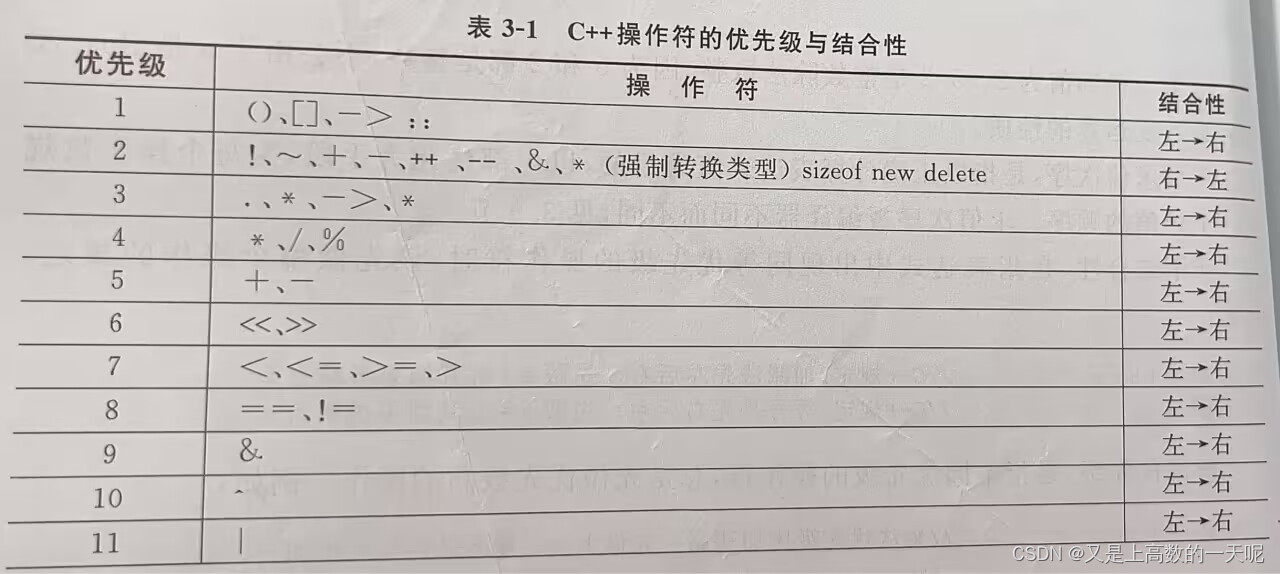 表 3-1 C++操作符的优先级与结合性
优先级 操 作 符 结合性
1 ()、[]、—> :: 左→右
2 !、~、+、-、++、--、&、*(强制转换类型)sizeof new delete 右→左
3 .、*、—>、* 左→右
4 *、/、% 左→右
5 +、- 左→右
6 <<、>> 左→右
7 <、<=、>=、> 左→右
8 ==、!= 左→右
9 & 左→右
10 ^ 左→右
11 | 左→右
CSDN @又是上高数的一天呢